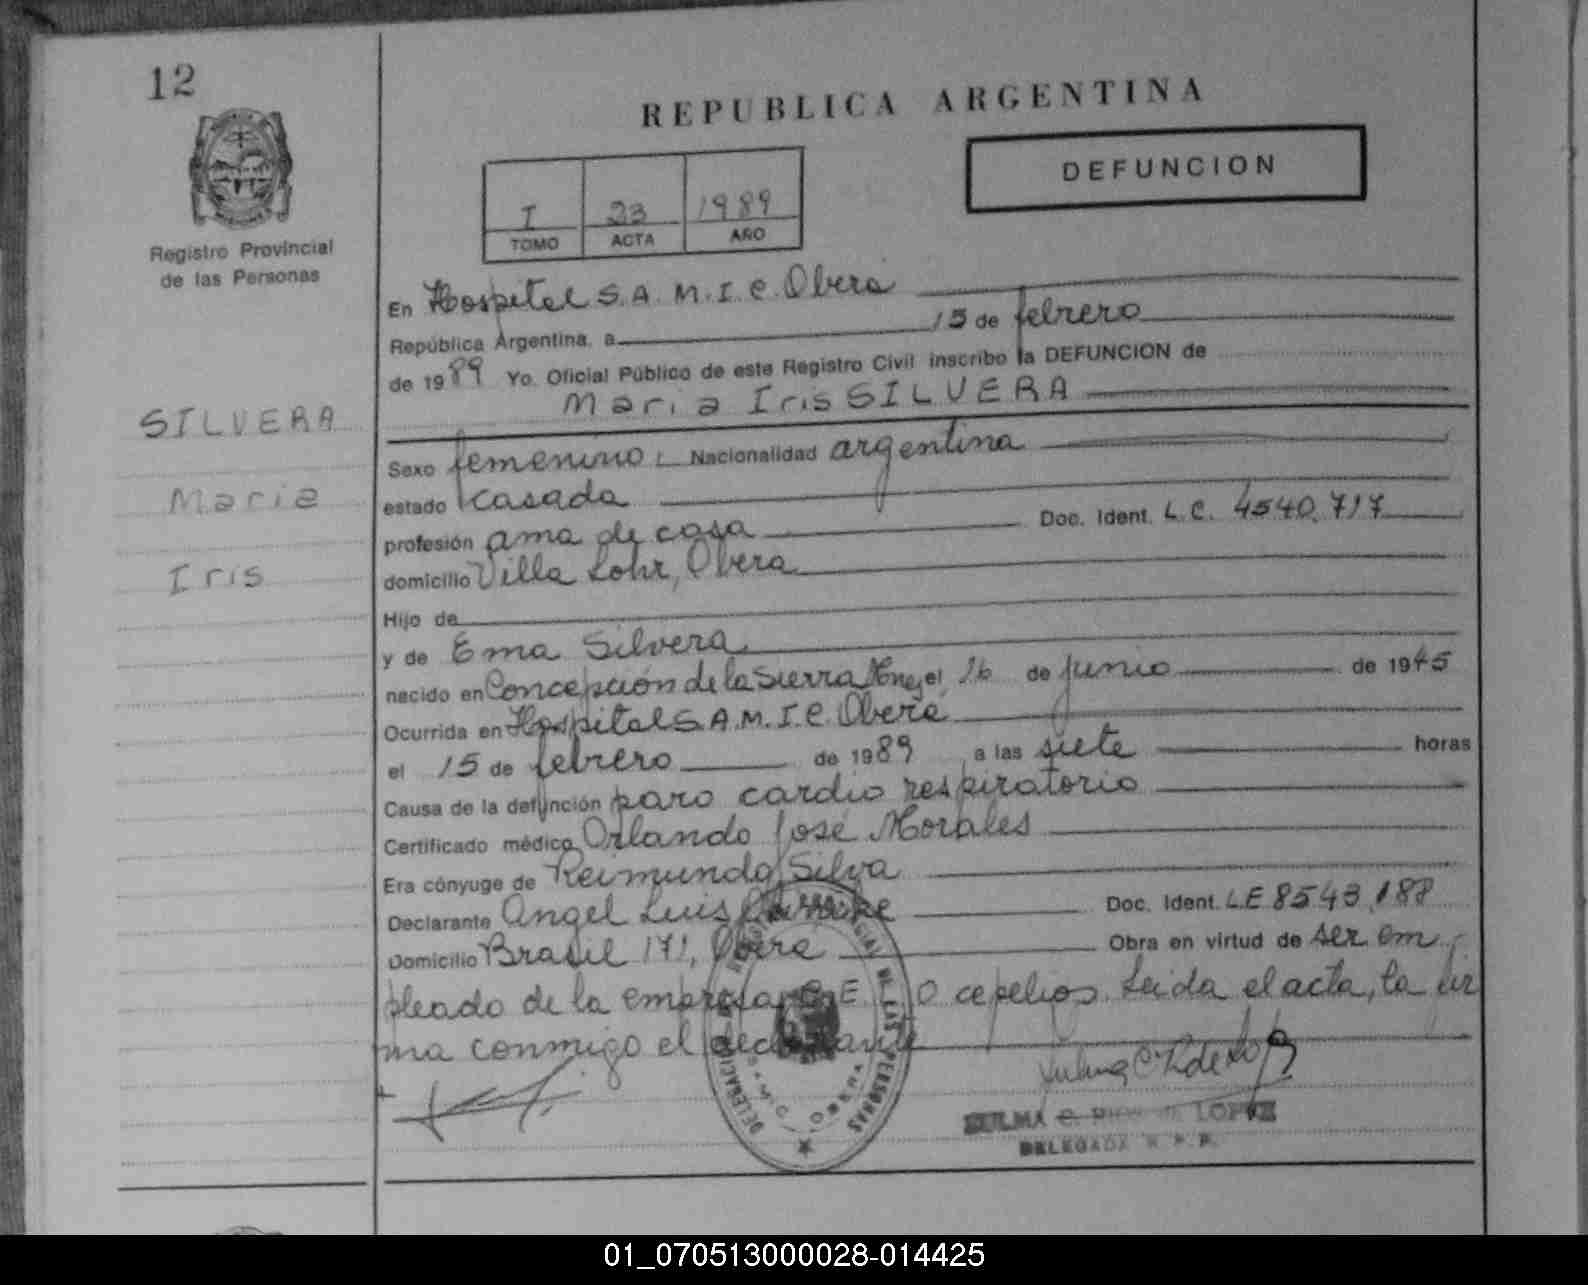 12
REPUBLICA ARGENTINA
DEFUNCION
I 23 1989
TOMO ACTA AÑO
Registro Provincial
de las Personas
SILVERA
Maria
Iris
En Hospital S.A.M.I.C. Oberá
República Argentina, a 15 de febrero
de 1989 Yo. Oficial Público de este Registro Civil inscribo la DEFUNCION de
Maria Iris SILVERA
Sexo femenino Nacionalidad argentina
estado casada
profesión ama de casa Doc. Ident. L.C. 4540.717
domicilio Villa Lohr, Oberá
Hijo de
y de Ema Silvera
nacido en Concepción de la Sierra Mnes el 16 de junio de 1945
Ocurrida en Hospital S.A.M.I.C. Oberá
el 15 de febrero de 1989 a las siete horas
Causa de la defunción paro cardio respiratorio
Certificado médico Orlando José Morales
Era cónyuge de Reimundo Silva
Declarante Angel Luis Doc. Ident. LE 8543.188
Domicilio Brasil 171, Oberá Obra en virtud de ser em
pleado de la empresa C.E.L.O cepelios. Leida el acta, la fir
ma conmigo el declarante
DELEGACION
DE LAS PERSONAS
S.A.M.I.C. OBERA
ZULMA C. RIOS DE LOPEZ
DELEGADA R.P.P.
01_070513000028-014425